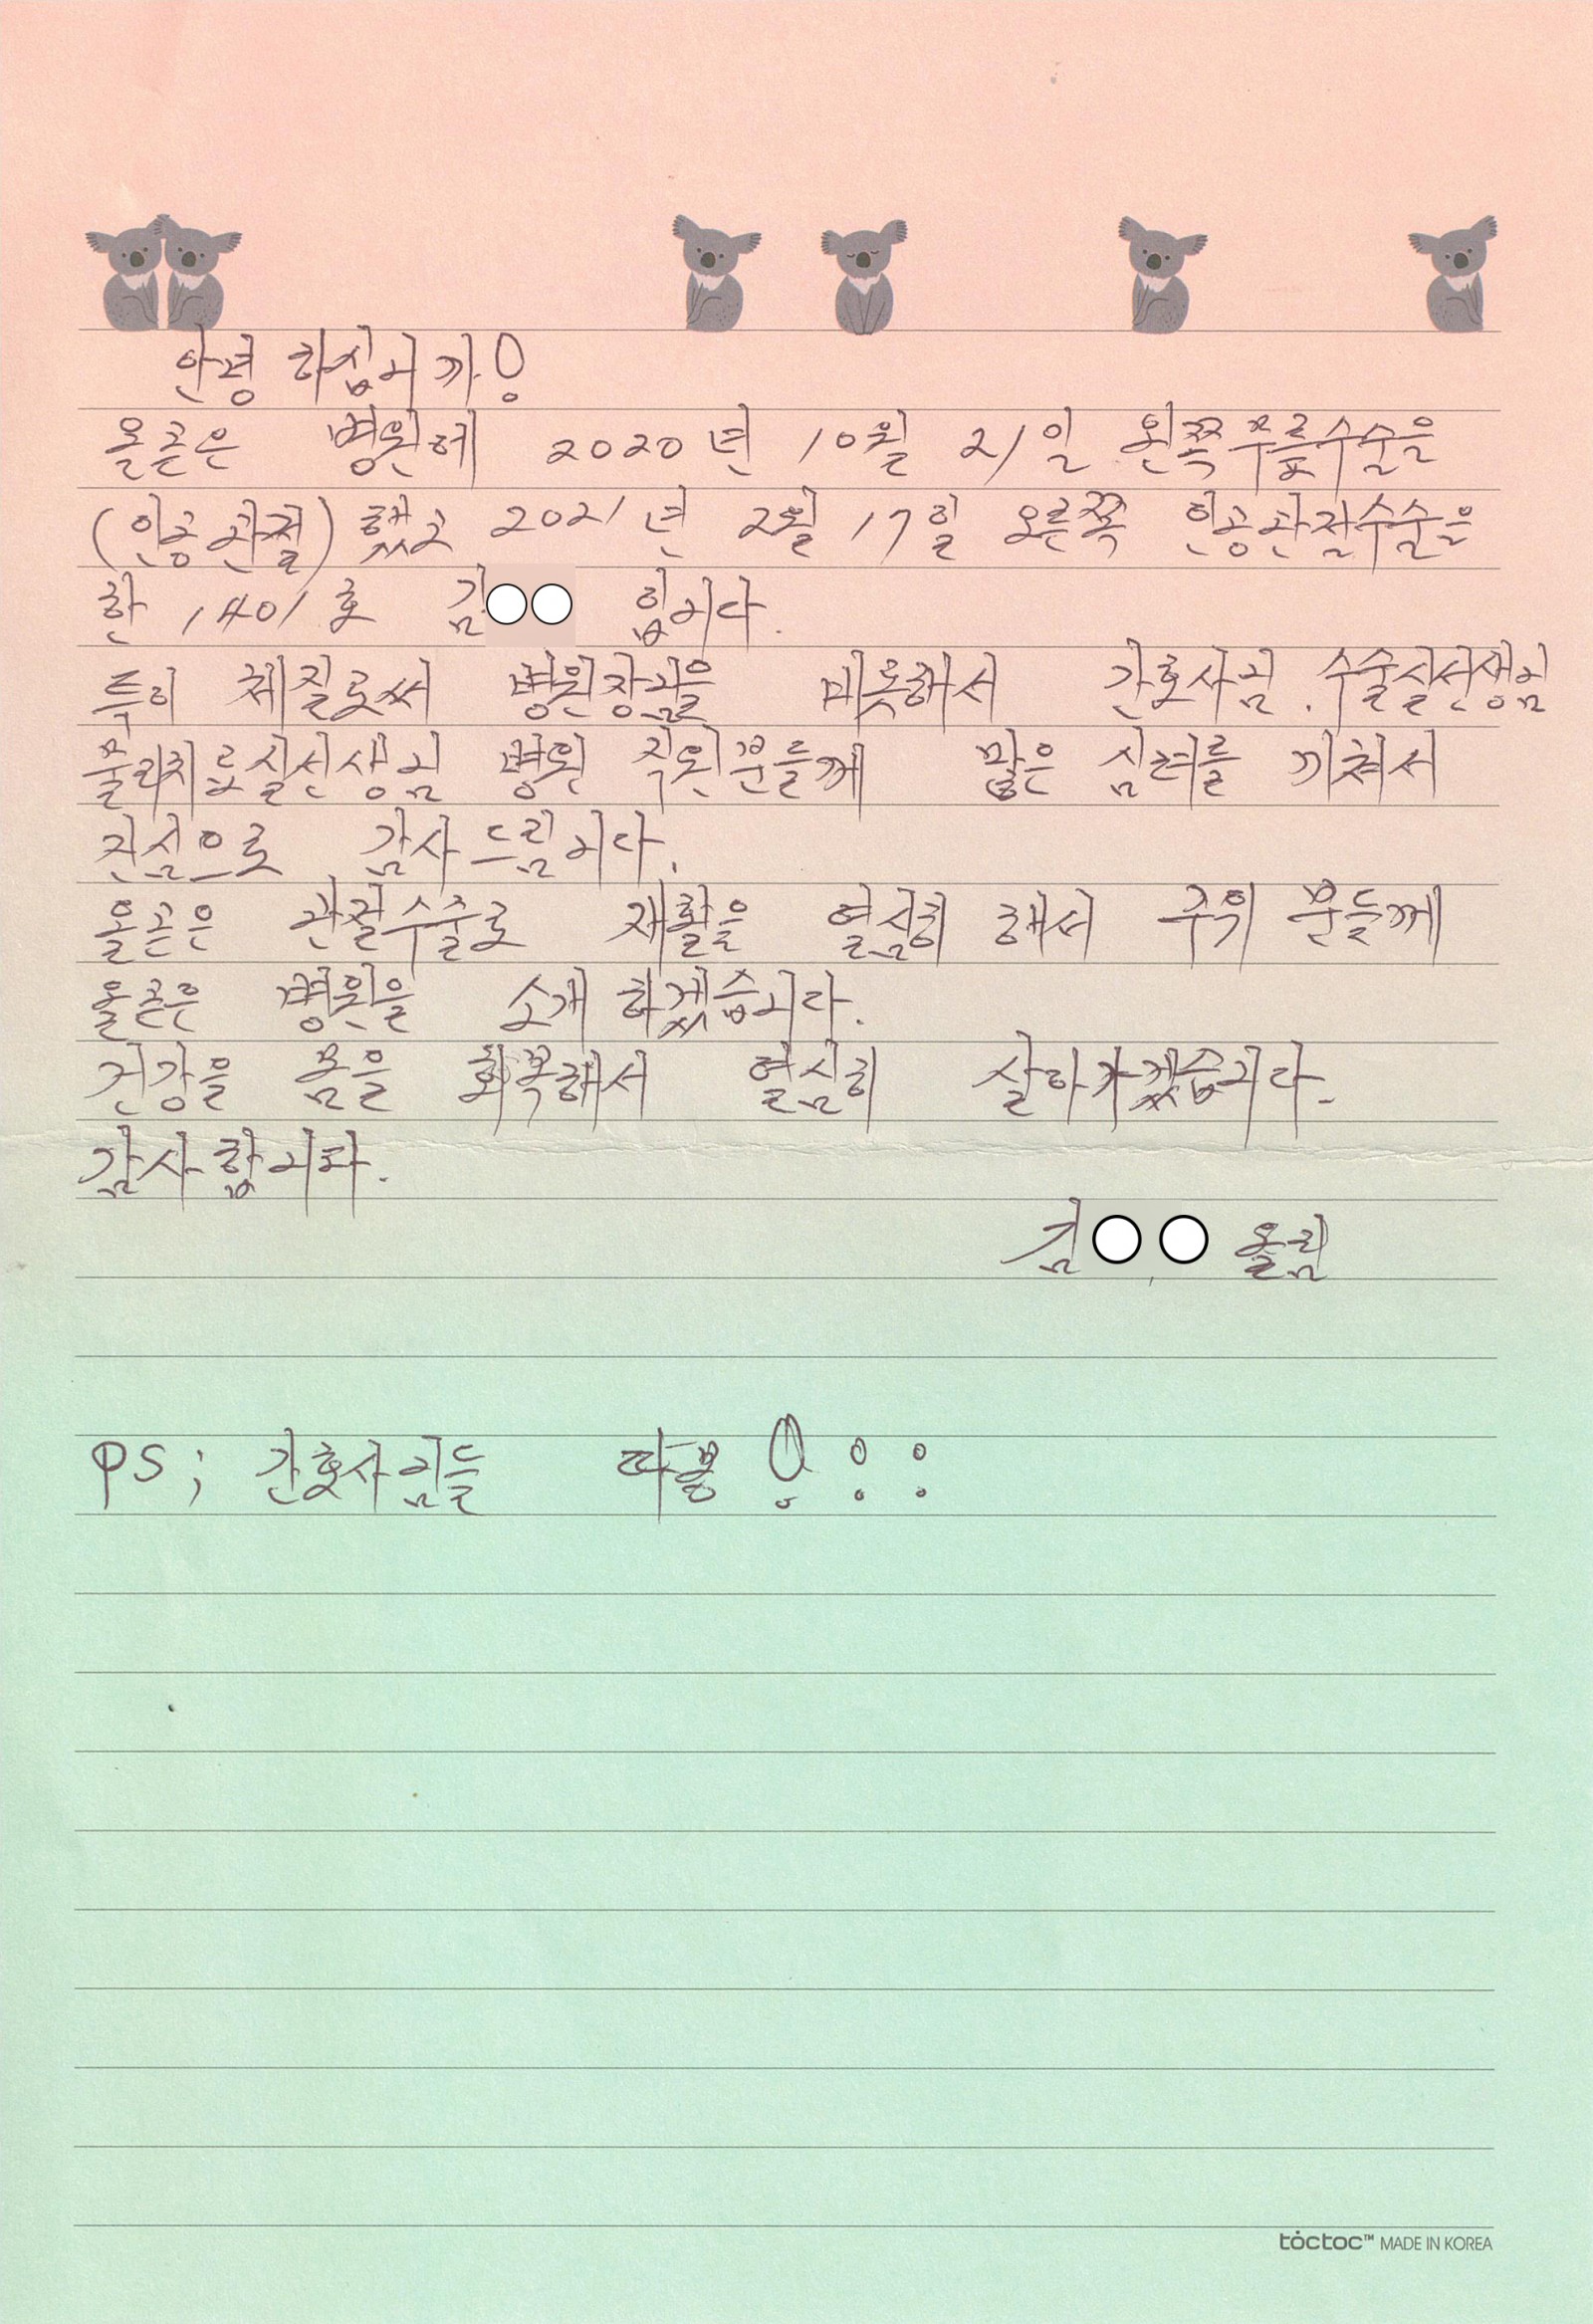 안녕 하십니까!
올곧은 병원에 2020년 10월 21일 왼쪽무릎수술을
(인공관절) 했고 2021년 2월 17일 오른쪽 인공관절수술을
한 1401호 김○○ 입니다.
특히 체질로써 병원장님을 비롯해서 간호사님. 수술실선생님
물리치료실선생님 병원 직원분들께 많은 심려를 끼쳐서
진심으로 감사 드립니다.
올곧은 관절수술로 재활을 열심히 해서 주위 분들께
올곧은 병원을 소개 하겠습니다.
건강을 몸을 회복해서 열심히 살아가겠습니다.
감사합니다.
김○○ 올림
PS; 간호사님들 따봉!!!
tóctoc™ MADE IN KOREA